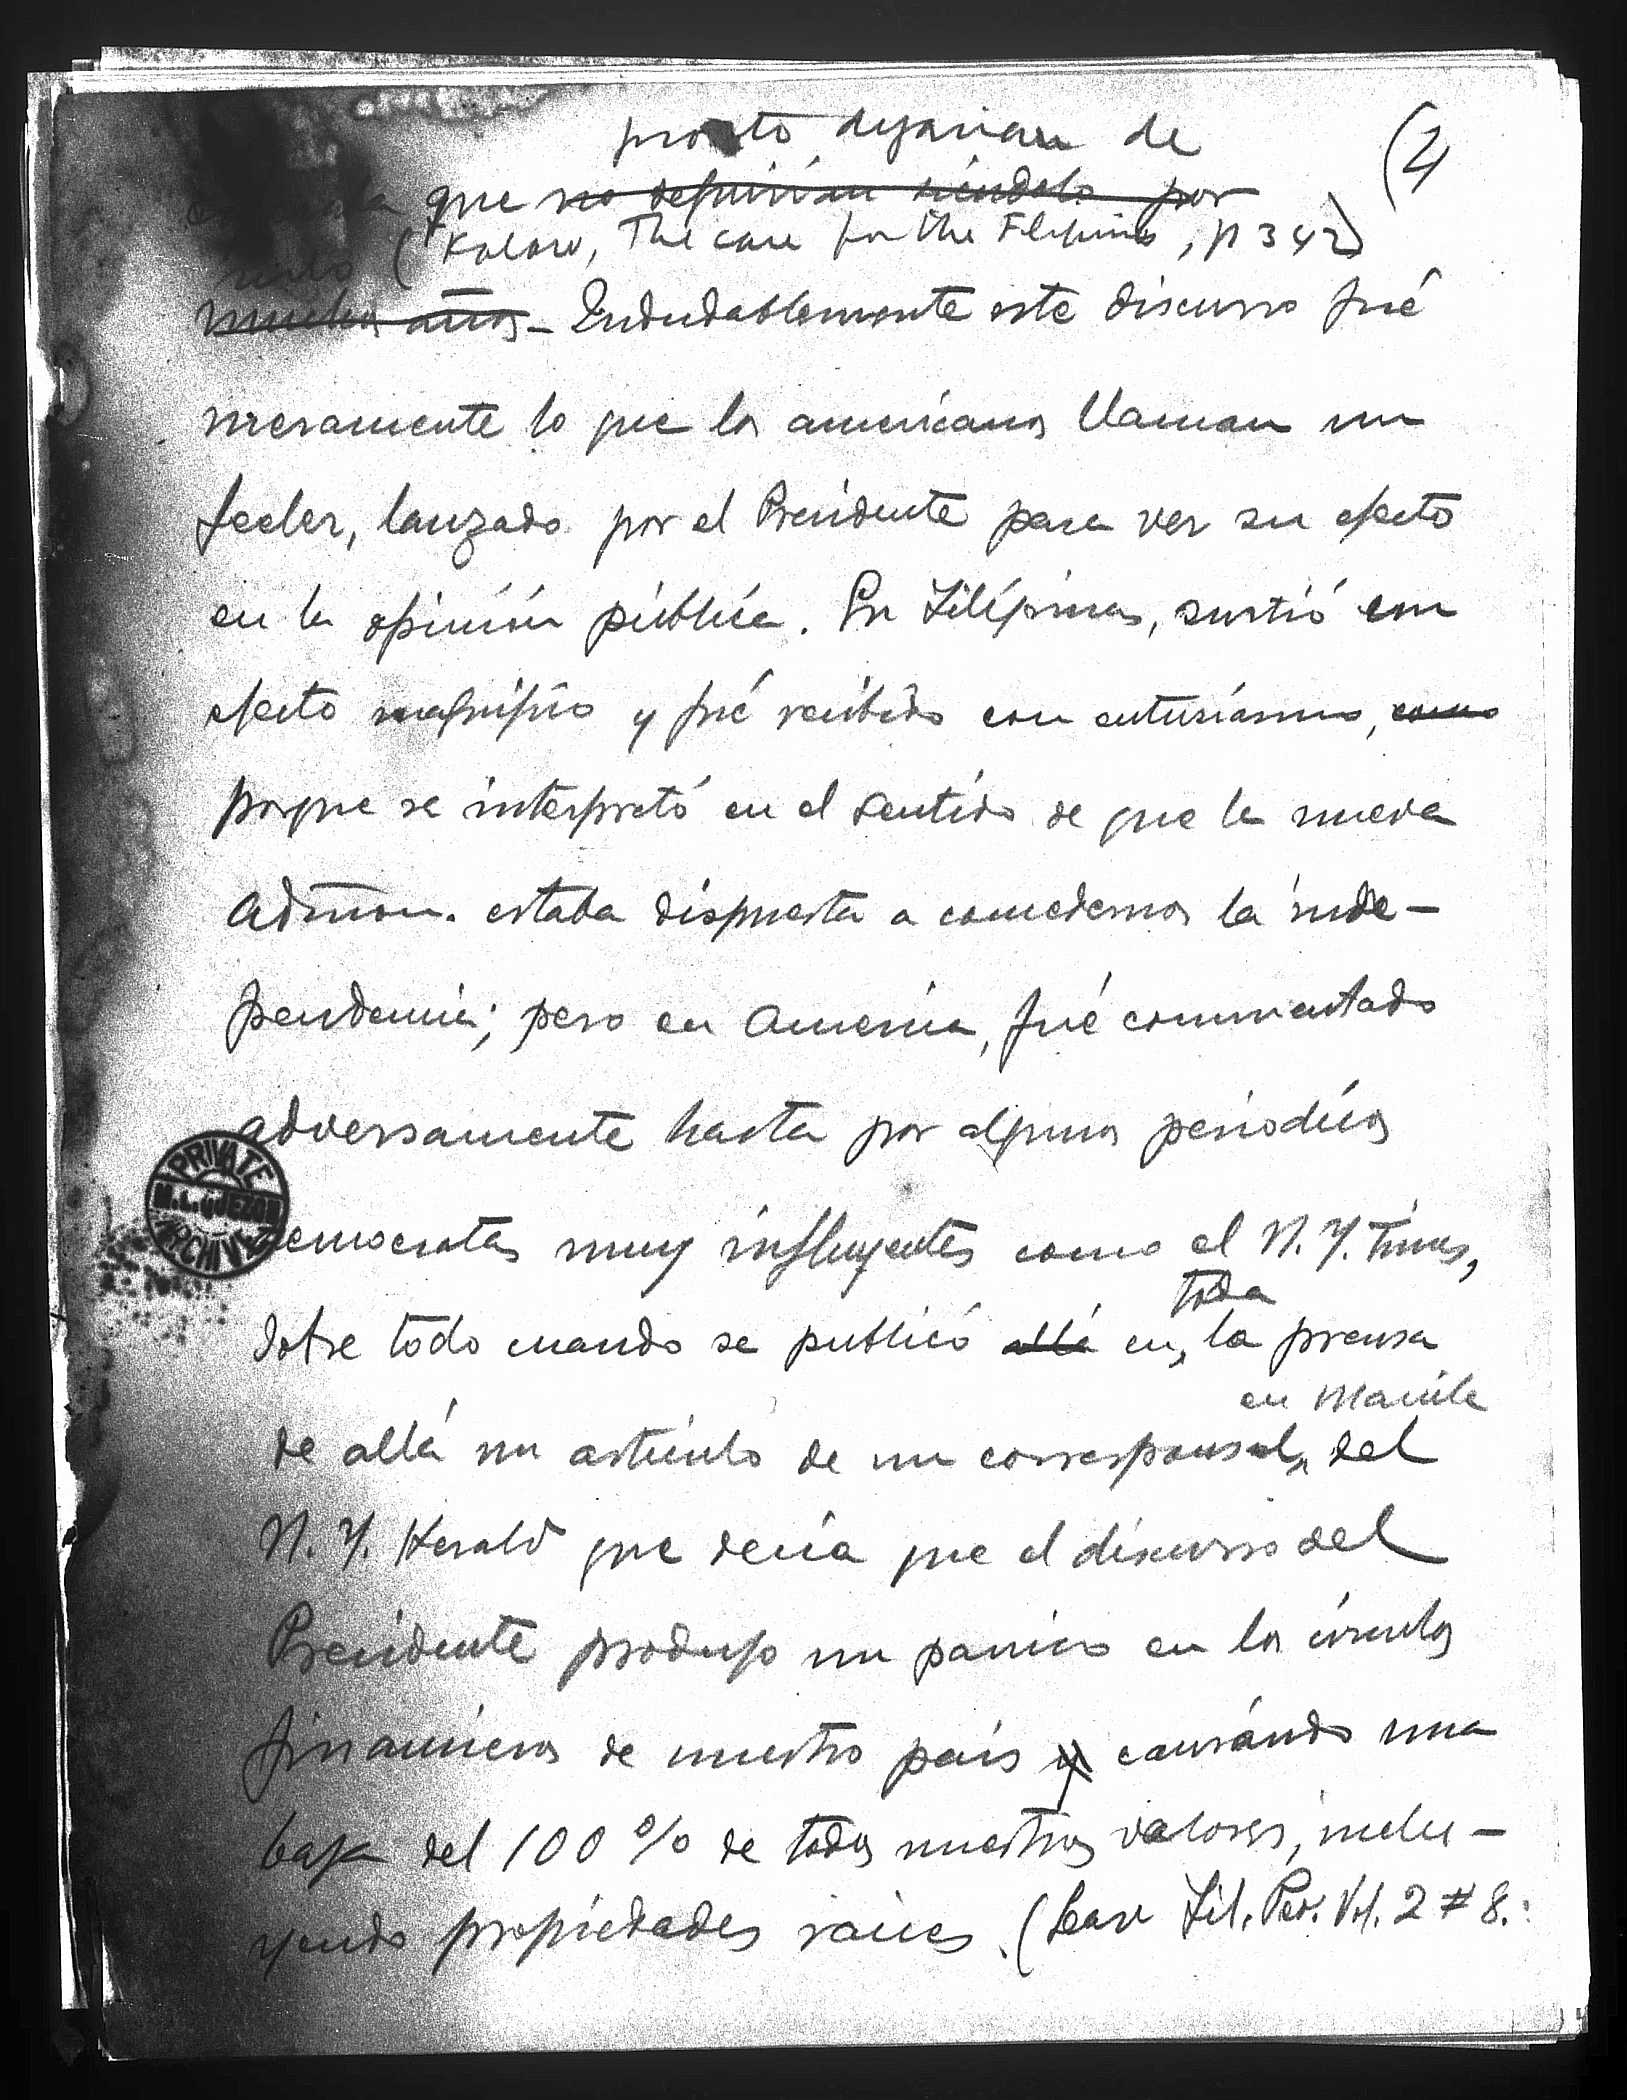 (2)
pronto dejarian de
que no seguirían siéndolo por
(Kalaw, The case for the Filipinos, p 342)
muchos años - Indudablemente este discurso fué
meramente lo que los americanos llaman un
feeler, lanzado por el Presidente para ver su efecto
en la opinión pública. En Filipinas, surtió un
efecto magnifico y fué recibido con entusiasmo, como
porque se interpretó en el sentido de que la nueva
Admon. estaba dispuesta a concedernos la inde-
pendencia; pero en America, fué commentado
adversamente hasta por algunos periodicos
democratas muy influyentes como el N. Y. Times,
toda
Sobre todo cuando se publicó allá en, la prensa
en Manila
de allá un articulo de un corresponsal, del
N. Y. Herald que decía que el discurso del
Presidente produjo un panico en los círculos
financieros de nuestro país y causándo una
baja del 100 % de todos nuestros valores, inclu-
yendo propiedades raices. (Case Fil. Per. Vol. 2 # 8.:
PRIVATE
M.L. QUEZON
ARCHIVES